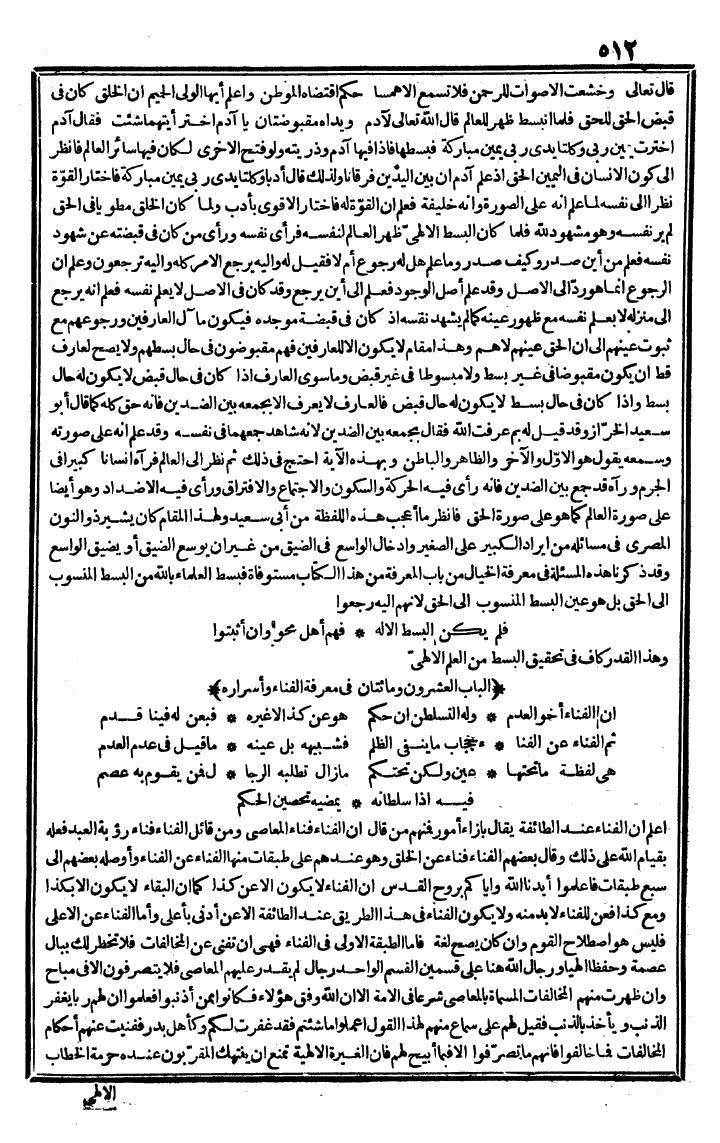 ٥١٢
قال تعالى وخشعت الاصوات للرحمن فلا تسمع الا همسا حكم اقتضاه الموطن واعلم أيها الولى الحميم ان الخلق كان فى
قبض الحق للحق فلما انبسط ظهر للعالم قال الله تعالى لآدم ويداه مقبوضتان يا آدم اختر أيتهما شئت فقال آدم
اخترت يمين ربى وكلتا يدى ربى يمين مباركة فبسطها فاذا فيها آدم وذريته ولو فتح الاخرى لكان فيها سائر العالم فانظر
الى كون الانسان فى اليمين الحق اذ علم آدم ان بين اليدين فرقانا ولذلك قال أدبا وكلتا يدى ربى يمين مباركة فاختار القوّة
نظرا الى نفسه لما علم انه على الصورة وانه خليفة فعلم ان القوّة له فاختار الاقوى بأدب ولما كان الخلق مطويا فى الحق
لم ير نفسه وهو مشهود لله فلما كان البسط الالهىّ ظهر العالم لنفسه فرأى نفسه ورأى من كان فى قبضته عن شهود
نفسه فعلم من أين صدر وكيف صدر وما علم هل له رجوع أم لا فقيل له واليه يرجع الامر كله واليه ترجعون وعلم ان
الرجوع انما هو ردّ الى الاصل وقد علم أصل الوجود فعلم الى أين يرجع وقد كان فى الاصل لا يعلم نفسه فعلم انه يرجع
الى منزلة لا يعلم نفسه مع ظهور عينه كما لم يشهد نفسه اذ كان فى قبضة موجده فيكون مآل العارفين ورجوعهم مع
ثبوت عينهم الى ان الحق عينهم لا هم وهذا مقام لا يكون الا للعارفين فهم مقبوضون فى حال بسطهم ولا يصح لعارف
قط ان يكون مقبوضا فى غير بسط ولا مبسوطا فى غير قبض وما سوى العارف اذا كان فى حال قبض لا يكون له حال
بسط واذا كان فى حال بسط لا يكون له حال قبض فالعارف لا يعرف الا بجمعه بين الضدين فانه حق كله كما قال أبو
سعيد الخرّاز وقد قيل له بم عرفت الله فقال بجمعه بين الضدين لانه شاهد جمعهما فى نفسه وقد علم انه على صورته
وسمعه يقول هو الاوّل والآخر والظاهر والباطن وبهذه الآية احتج فى ذلك ثم نظر الى العالم فرآه انسانا كبيرا فى
الجرم ورآه قد جمع بين الضدين فانه رأى فيه الحركة والسكون والاجتماع والافتراق ورأى فيه الاضداد وهو أيضا
على صورة العالم كما هو على صورة الحق فانظر ما أعجب هذه اللفظة من أبى سعيد ولهذا المقام كان يشير ذو النون
المصرى فى مسائله من ايراد الكبير على الصغير وادخال الواسع فى الضيق من غير ان يوسع الضيق أو يضيق الواسع
وقد ذكرنا هذه المسئلة فى معرفة الخيال من باب المعرفة من هذا الكتاب مستوفاة فبسط العلماء بالله من البسط المنسوب
الى الحق بل هو عين البسط المنسوب الى الحق لانهم اليه رجعوا
فلم يكن البسط الا له * فهم أهل محو وان أثبتوا
وهذا القدر كاف فى تحقيق البسط من العلم الالهىّ
﴿الباب العشرون ومائتان فى معرفة الفناء وأسراره﴾
ان الفناء أخو العدم * وله التسلطن ان حكم هو عن كذا لاغيره * فبعن له فينا قدم
ثم الفناء عن الفنا * ء حجاب ما ينفى الظلم فشبيهه بل عينه * ما قيل فى عدم العدم
هى لفظة ما تحتها * عين ولكن تحتكم ما زال تطلبه الرجا * ل فن يقوم به عصم
فيه اذا سلطانه * يمضيه تحصين الحكم
اعلم ان الفناء عند الطائفة يقال بازاء أمور فنهم من قال ان الفناء فناء المعاصى ومن قائل الفناء فناء رؤية العبد فعله
بقيام الله على ذلك وقال بعضهم الفناء فناء عن الخلق وهو عندهم على طبقات منها الفناء عن الفناء وأوصله بعضهم الى
سبع طبقات فاعلموا أيدنا الله واياكم بروح القدس ان الفناء لا يكون الا عن كذا كما ان البقاء لا يكون الا بكذا
ومع كذا فعن للفناء لا بد منه ولا يكون الفناء فى هذا الطريق عند الطائفة الا عن أدنى بأعلى وأما الفناء عن الاعلى
فليس هو اصطلاح القوم وان كان يصح لغة فاما الطبقة الاولى فى الفناء فهى ان تفنى عن المخالفات فلا تخطر لك ببال
عصمة وحفظا الهيا ورجال الله هنا على قسمين القسم الواحد رجال لم يقدر عليهم المعاصى فلا يتصرفون الا فى مباح
وان ظهرت منهم المخالفات المسماة بالمعاصى شرعا فى الامة الا ان الله وفق هؤلاء فكانوا ممن أذنبوا فعلموا ان لهم ربا يغفر
الذنب ويأخذ بالذنب فقيل لهم على سماع منهم لهذا القول اعملوا ما شئتم فقد غفرت لكم وكأهل بدر ففنيت عنهم أحكام
المخالفات فما خالفوا فانهم ما تصرّفوا الا فيما أبيح لهم فان الغيرة الالهية تمنع ان ينتهك المقرّبون عنده حرمة الخطاب
الالهى